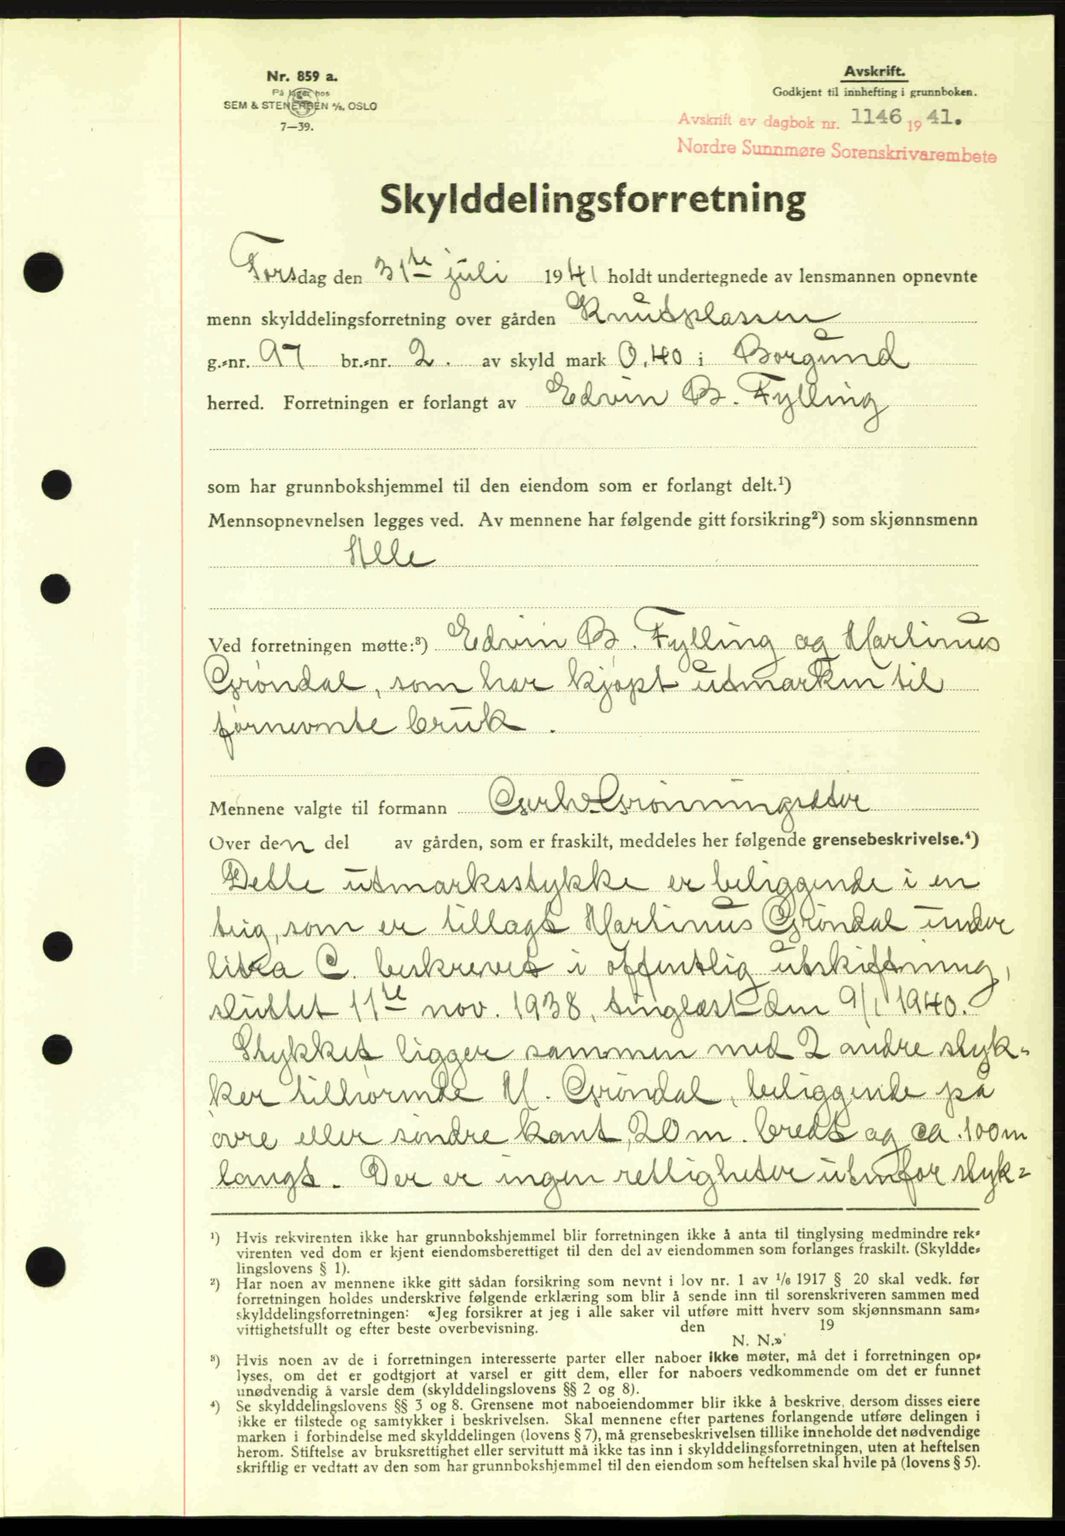 Nr. 859 a.
På lager hos
SEM & STENERSEN A/S, OSLO
7—39.
Avskrift.
Godkjent til innhefting i grunnboken.
Avskrift av dagbok nr. 1146 1941.
Nordre Sunnmøre Sorenskrivarembete
Skylddelingsforretning
Torsdag den 31te juli 1941 holdt undertegnede av lensmannen opnevnte
menn skylddelingsforretning over gården Knutsplassen
g.-nr. 97 br.-nr. 2. av skyld mark 0,40 i Borgund
herred. Forretningen er forlangt av Edvin B. Fylling
som har grunnbokshjemmel til den eiendom som er forlangt delt.¹)
Mennsopnevnelsen legges ved. Av mennene har følgende gitt forsikring²) som skjønnsmenn
Alle
Ved forretningen møtte:³) Edvin B. Fylling og Martinus
Grøndal, som har kjøpt utmarken til
førnevnte bruk.
Mennene valgte til formann Gerh. Grønningsæter
Over den del av gården, som er fraskilt, meddeles her følgende grensebeskrivelse.⁴)
Dette utmarksstykke er beliggende i en
teig, som er tillagt Martinus Grøndal under
litra C. beskrevet i offentlig utskiftning,
sluttet 11te nov. 1938, tinglæst den 9/1 1940.
Stykket ligger sammen med 2 andre styk-
ker tilhørende M. Grøndal, beliggende på
øvre eller søndre kant, 20 m. bredt og ca. 100 m
langt. Der er ingen rettigheter utenfor styk-
¹) Hvis rekvirenten ikke har grunnbokshjemmel blir forretningen ikke å anta til tinglysing medmindre rek-
virenten ved dom er kjent eiendomsberettiget til den del av eiendommen som forlanges fraskilt. (Skyldde-
lingslovens § 1).
²) Har noen av mennene ikke gitt sådan forsikring som nevnt i lov nr. 1 av 1/6 1917 § 20 skal vedk. før
forretningen holdes underskrive følgende erklæring som blir å sende inn til sorenskriveren sammen med
skylddelingsforretningen: «Jeg forsikrer at jeg i alle saker vil utføre mitt hverv som skjønnsmann sam-
vittighetsfullt og efter beste overbevisning. den 19
N. N.»
³) Hvis noen av de i forretningen interesserte parter eller naboer ikke møter, må det i forretningen op-
lyses, om det er godtgjort at varsel er gitt dem, eller for naboers vedkommende om det er funnet
unødvendig å varsle dem (skylddelingslovens §§ 2 og 8).
⁴) Se skylddelingslovens §§ 3 og 8. Grensene mot naboeiendommer blir ikke å beskrive, dersom disses eiere
ikke er tilstede og samtykker i beskrivelsen. Skal mennene efter partenes forlangende utføre delingen i
marken i forbindelse med skylddelingen (lovens § 7), må grensebeskrivelsen tillike inneholde det nødvendige
herom. Stiftelse av bruksrettighet eller servitutt må ikke tas inn i skylddelingsforretningen, uten at heftelsen
skriftlig er vedtatt av den som har grunnbokshjemmel til den eiendom som heftelsen skal hvile på (lovens § 5).